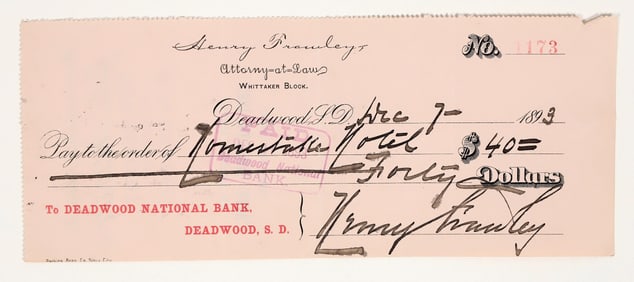 Henry Frawley,
Attorny=at=Law
WHITTAKER BLOCK.
No. 1173
Deadwood, S.D. Dec 7- 1893
Pay to the order of Homestake Hotel $40=
Forty Dollars
PAID
Deadwood National
BANK
To DEADWOOD NATIONAL BANK,
DEADWOOD, S. D.
Henry Frawley